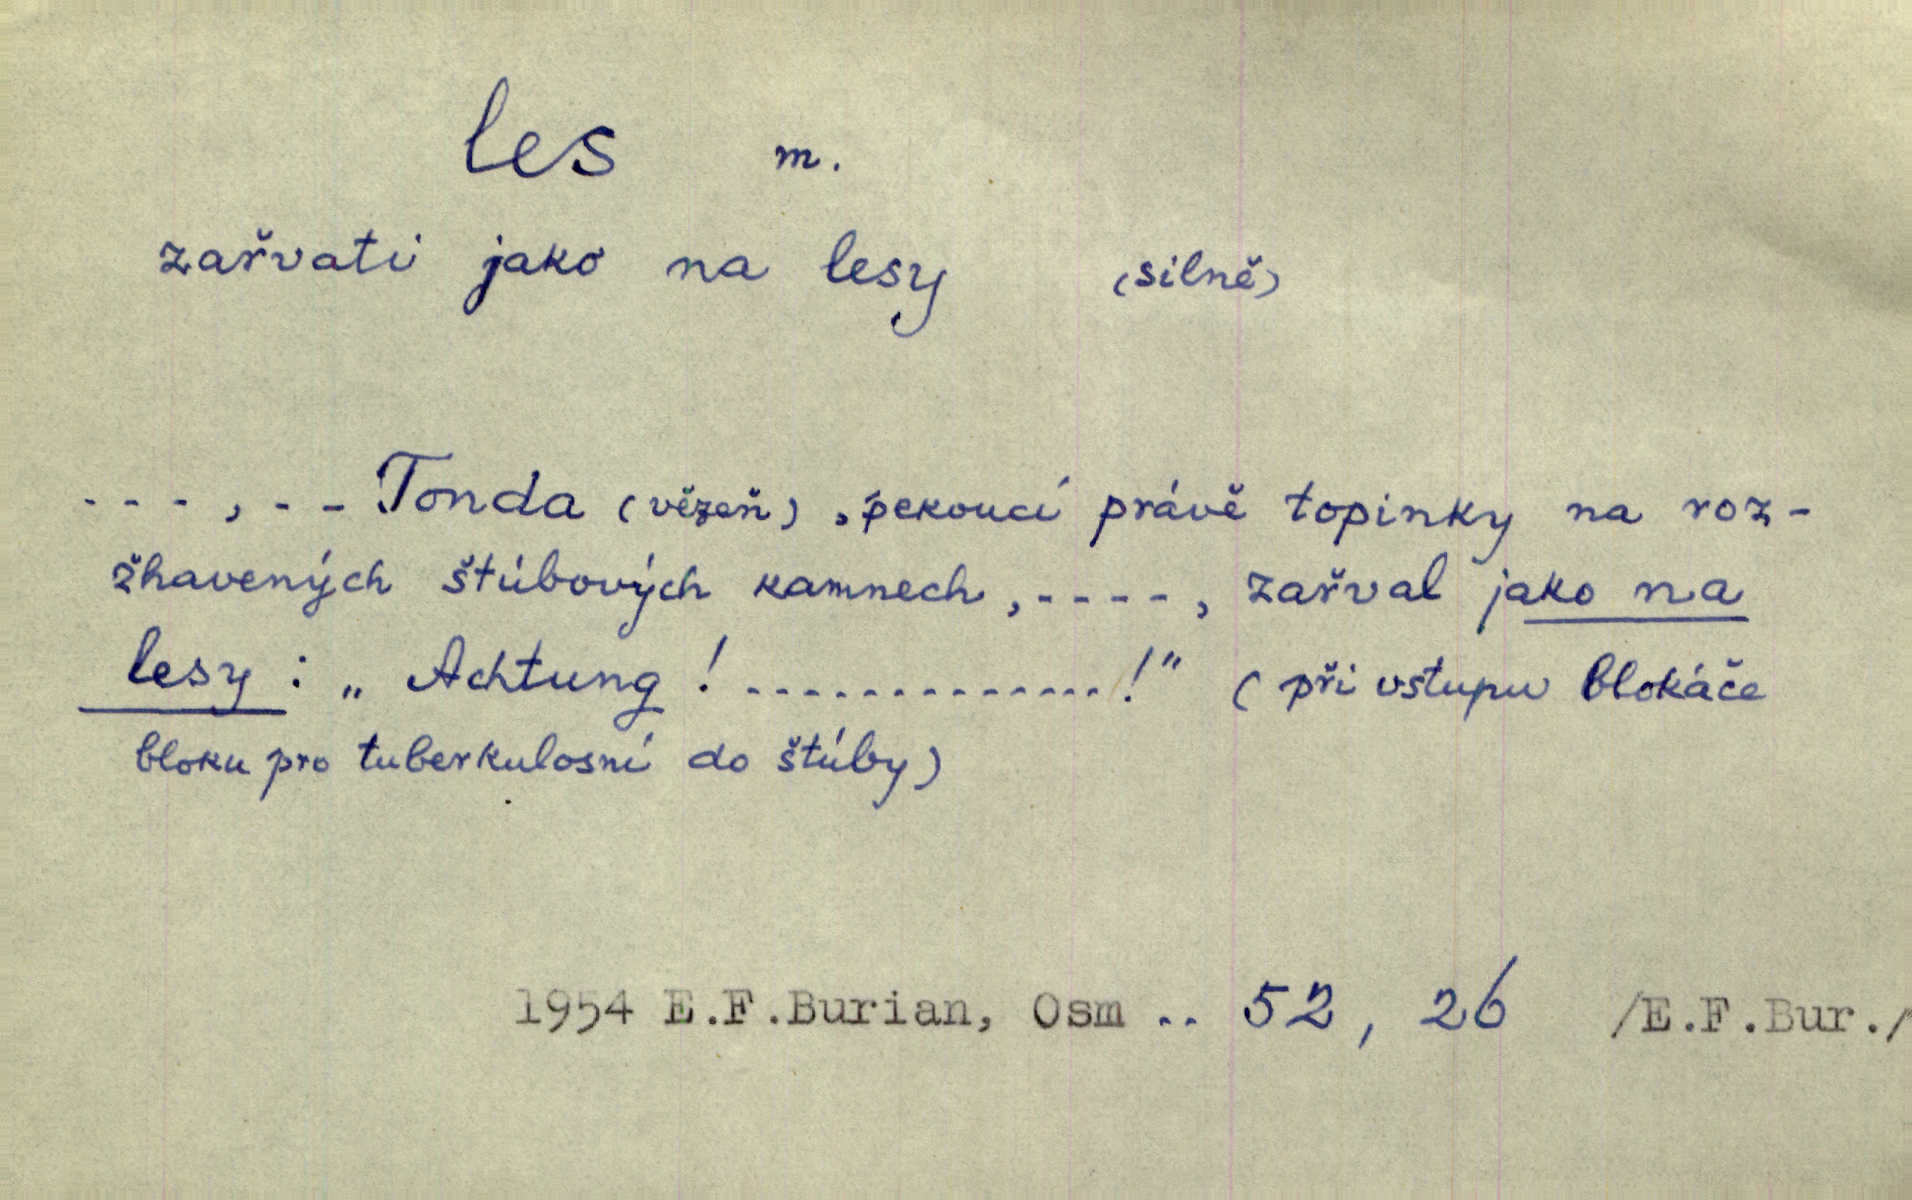 les m.
zařvati jako na lesy (silně)
- - - , - - Tonda (vězeň) , pekoucí právě topinky na roz-
žhavených štúbových kamnech , - - - - , zařval jako na
lesy : „ Achtung ! - - - - - - - - - - - - - ! “ ( při vstupu blokáče
bloku pro tuberkulosní do štúby)
1954 E.F.Burian, Osm .. 52 , 26 /E.F.Bur./